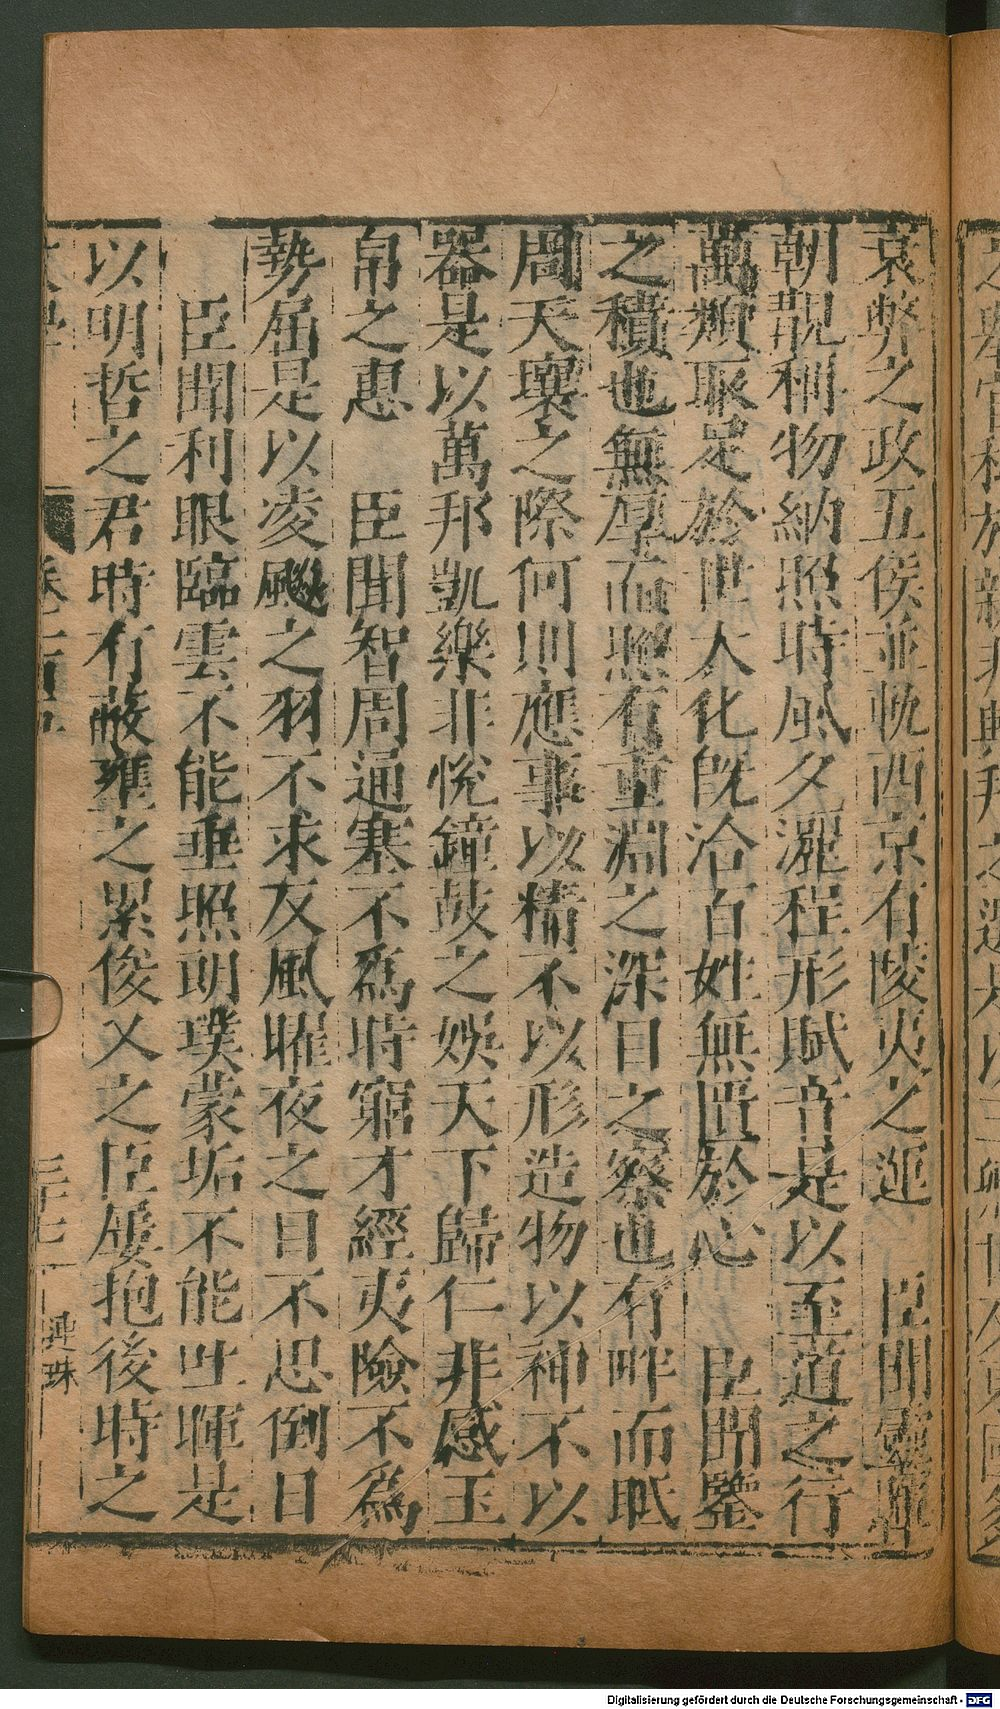 衰弊之政五侯並軌西京有陵夷之運　臣聞靈輝
朝覯稱物納照時風夕灑程形賦音是以至道之行
萬類取足於世大化既洽百姓無匱於心　臣聞鑒
之積也無厚而照有重淵之深目之察也有畔而眡
周天壤之際何則應事以精不以形造物以神不以
器是以萬邦凱樂非悅鐘鼓之娛天下歸仁非感玉
帛之惠　臣聞智周通塞不爲時窮才經夷險不爲
勢屈是以凌飈之羽不求反風曜夜之目不思倒日
臣聞利眼臨雲不能垂照朗璞蒙垢不能吐暉是
以明哲之君時有蔽壅之累俊乂之臣屢抱後時之
三十七
連珠
Digitalisierung gefördert durch die Deutsche Forschungsgemeinschaft - DFG